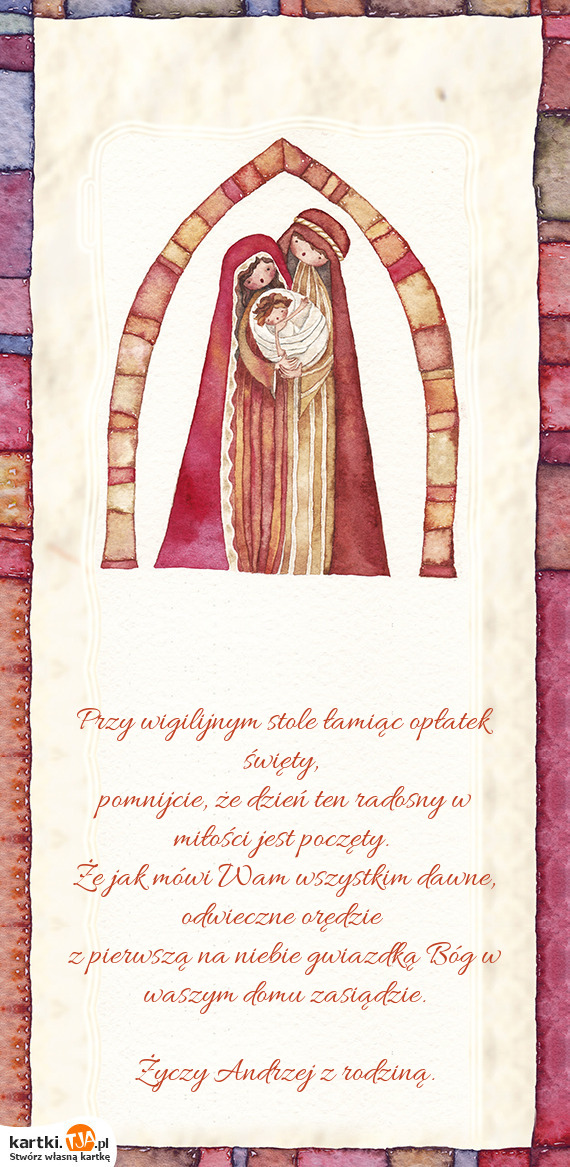 Przy wigilijnym stole łamiąc opłatek
święty,
pomnijcie, że dzień ten radosny w
miłości jest poczęty.
Że jak mówi Wam wszystkim dawne,
odwieczne orędzie
z pierwszą na niebie gwiazdką Bóg w
waszym domu zasiądzie.
Życzy Andrzej z rodziną.
kartki.TJA.pl
Stwórz własną kartkę